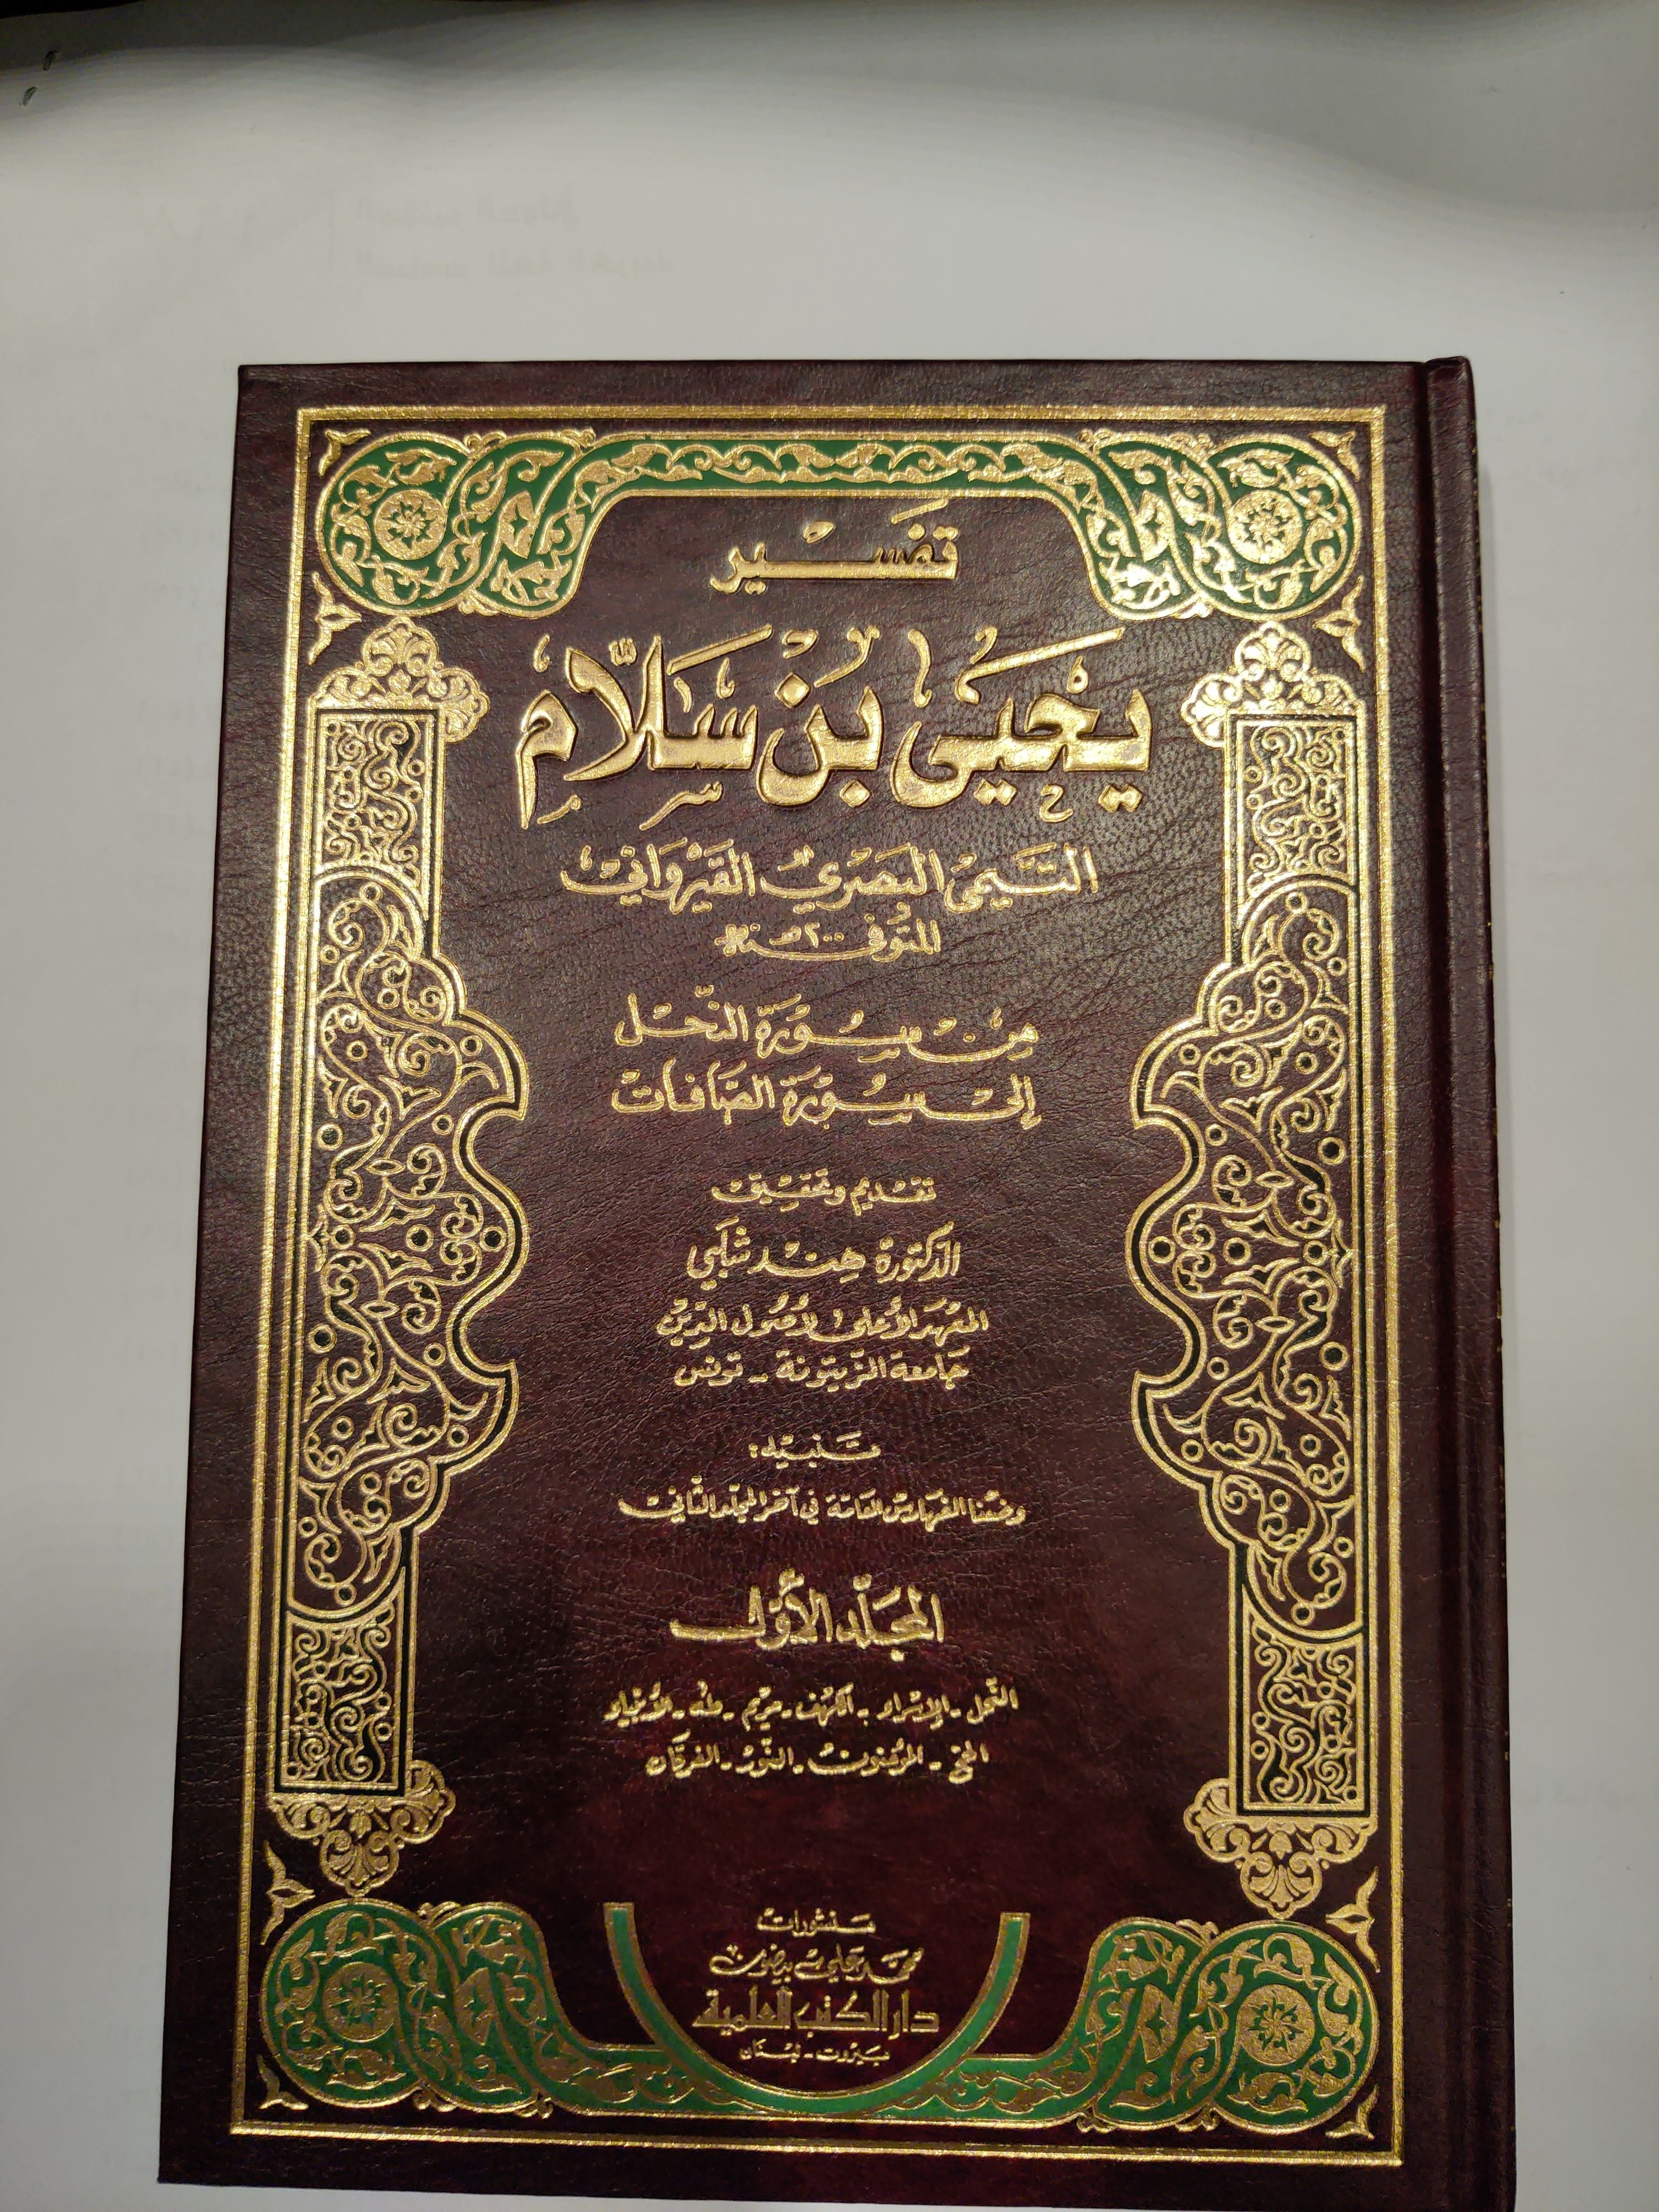 تفسير
يحيى بن سلام
التيمي البصري القيرواني
المتوفى ٢٠٠ هـ
من سورة النحل
إلى سورة الصافات
تقديم وتحقيق
الدكتورة هند شلبي
المعهد الأعلى لأصول الدين
جامعة الزيتونة - تونس
تنبيه:
وضعنا الفهارس العامة في آخر المجلد الثاني
المجلد الأول
النحل - الإسراء - الكهف - مريم - طه - الأنبياء
الحج - المؤمنون - النور - الفرقان
منشورات
محمد علي بيضون
دار الكتب العلمية
بيروت - لبنان